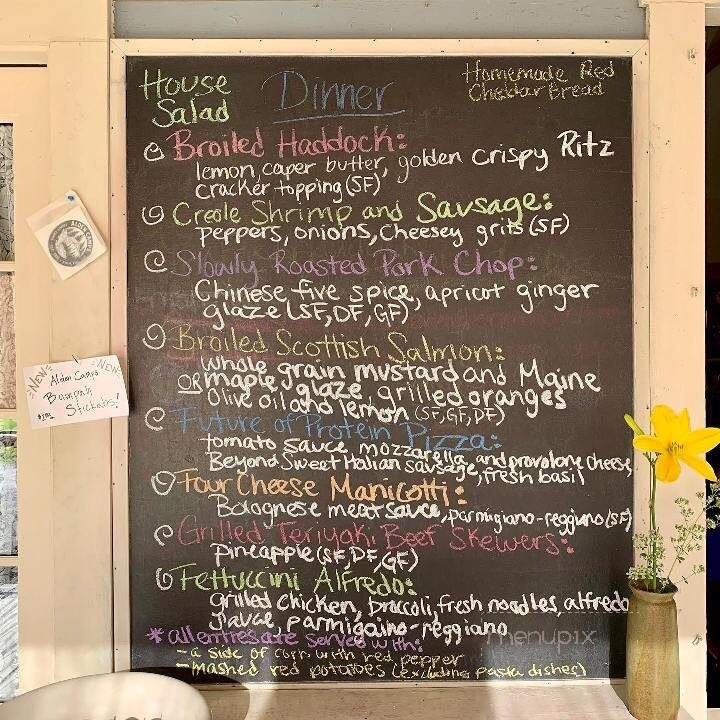 House
Salad
Dinner
Homemade Red
Cheddar Bread
Broiled Haddock:
lemon caper butter, golden crispy Ritz
cracker topping (SF)
Creole Shrimp and Sausage:
peppers, onions, Cheesey grits (SF)
Slowly Roasted Pork Chop:
Chinese five spice, apricot ginger
glaze (SF, DF, GF)
Broiled Scottish Salmon:
whole grain mustard and Maine
maple glaze, grilled oranges
OR
Olive oil and lemon (SF, GF, DF)
Future of Protein Pizza:
tomato sauce, mozzarella, and provolone cheese,
Beyond Sweet Italian sausage, fresh basil
Four Cheese Manicotti:
Bolognese meat sauce, parmigiano-reggiano (SF)
Grilled Teriyaki Beef Skewers:
pineapple (SF, DF, GF)
Fettuccini Alfredo:
grilled chicken, broccoli, fresh noodles, alfredo
sauce, parmigaino-reggiano
* all entrees are served with:
- a side of corn with red pepper
- mashed red potatoes (excluding pasta dishes)
NEW
NEW
Alden Camps
Bumper
Stickers!
menupix